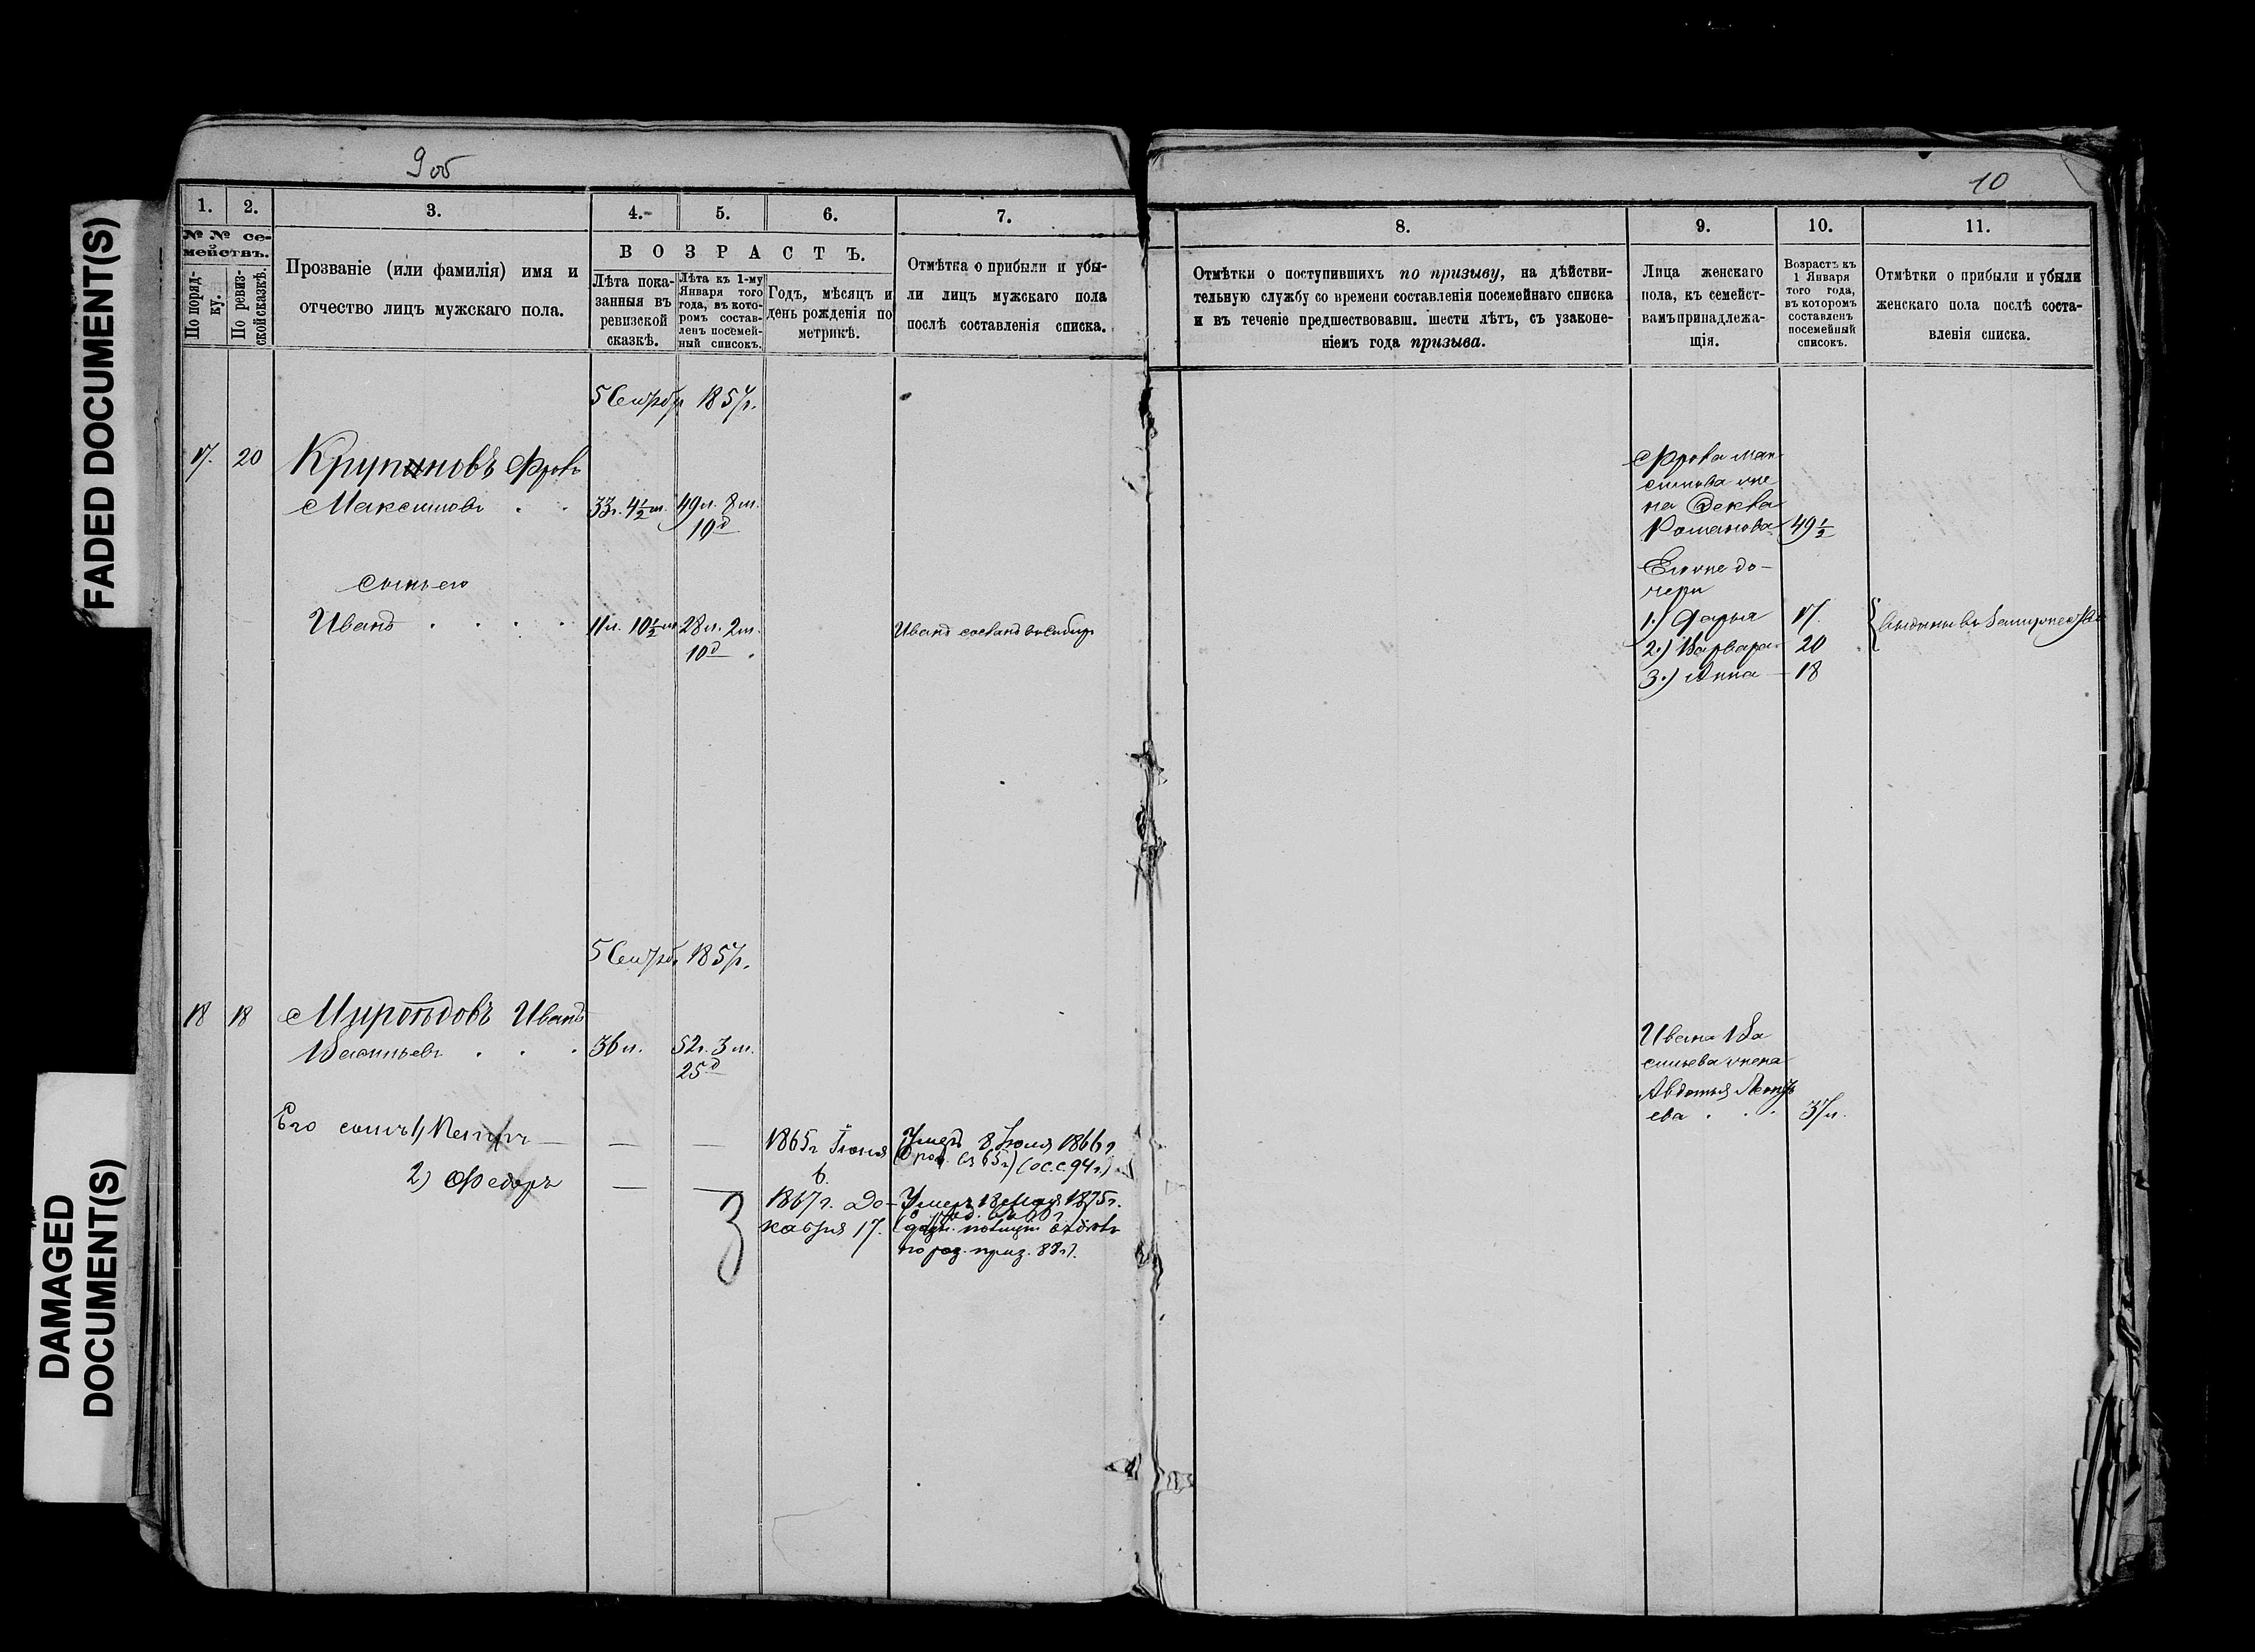 FADED DOCUMENT(S)
DAMAGED
DOCUMENT(S)
9об
1. 2. 3. 4. 5. 6. 7.
№ № се-
мействъ.
По поряд-
ку.
По ревиз-
ской сказкѣ.
Прозваніе (или фамилія) имя и
отчество лицъ мужскаго пола.
ВОЗРАСТЪ.
Лѣта пока-
занныя въ
ревизской
сказкѣ.
Лѣта къ 1-му
Января того
года, въ кото-
ромъ состав-
ленъ посемей-
ный списокъ.
Годъ, мѣсяцъ и
день рожденія по
метрикѣ.
Отмѣтка о прибыли и убы-
ли лицъ мужскаго пола
послѣ составленія списка.
5 Сентбр 1857г.
17. 20 Крупеновъ Фролъ
Максимовъ . . 33г. 4½ м. 49л. 8м.
10д
сынъ его
Иванъ . . . . 11л. 10½ м 28л. 2м.
10д
Иванъ сосланъ въ Сибирь
5 Сентбр. 1857г.
18 18 Миропѣдовъ Иванъ
Васильевъ . . . 36л. 52г. 3м.
25д
Его сынъ 1) Петръ — — — 1865г Іюня
6.
Умеръ 8 Іюля 1866г
2) Федоръ — — 1867г. Де-
кабря 17.
3
Умеръ 18 Мая 1875г.
по приз. 88г).
10
8. 9. 10. 11.
Отмѣтки о поступившихъ по призыву, на дѣйстви-
тельную службу со времени составленія посемейнаго списка
и въ теченіе предшествовавш. шести лѣтъ, съ узаконе-
ніемъ года призыва.
Лица женскаго
пола, къ семейст-
вамъ принадлежа-
щія.
Возрастъ къ
1 Января
того года,
въ которомъ
составленъ
посемейный
списокъ.
Отмѣтки о прибыли и убыли
женскаго пола послѣ соста-
вленія списка.
Фрола Мак
симова же
на Фекла
Романова 49½
Его же до-
чери
1.) Дарья 17.
2.) Варвара 20
3.) Анна — 18
выданы въ замужество
Ивана Ва
сильева жена
Авдотья Леонть
ева . . . 37л.